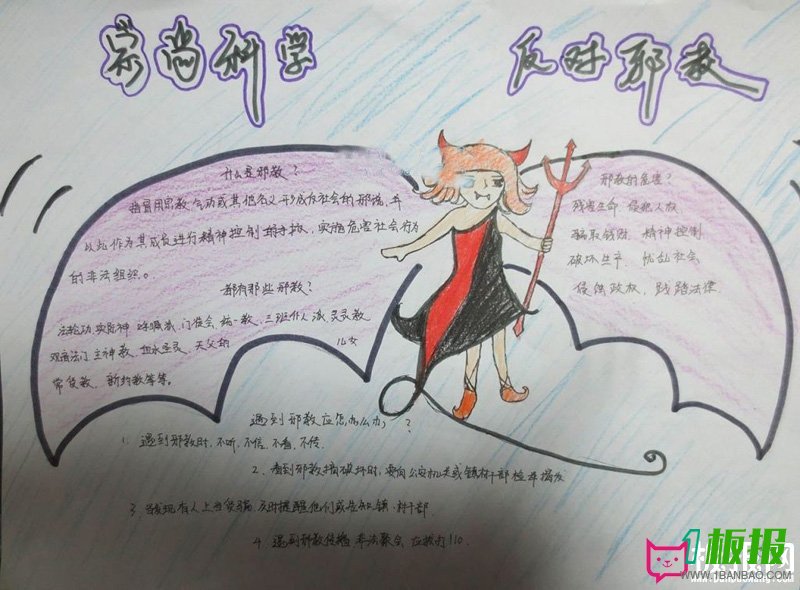 崇尚科学 反对邪教
什么是邪教?
指冒用宗教、气功或其他名义形成反社会的邪说,并
以此作为其成员进行精神控制的手段,实施危害社会行为
的非法组织。
都有那些邪教?
法轮功,实际神 呼喊派,门徒会 统一教,三班仆人派 灵灵教
观音法门,主神教、血水圣灵、天父的 儿女
常受教、新约教等等。
邪教的危害?
残害生命,侵犯人权
骗取钱财,精神控制
破坏生产,扰乱社会
侵蚀政权,践踏法律
遇到邪教应怎么办?
1. 遇到邪教时,不听、不信、不看、不传
2. 看到邪教搞破坏时,要向公安机关或镇村干部检举揭发
3. 发现有人上当受骗 及时提醒他们或告知镇、村干部
4. 遇到邪教传播 非法聚会 应拨打110.
1板报
WWW.1BANBAO.COM